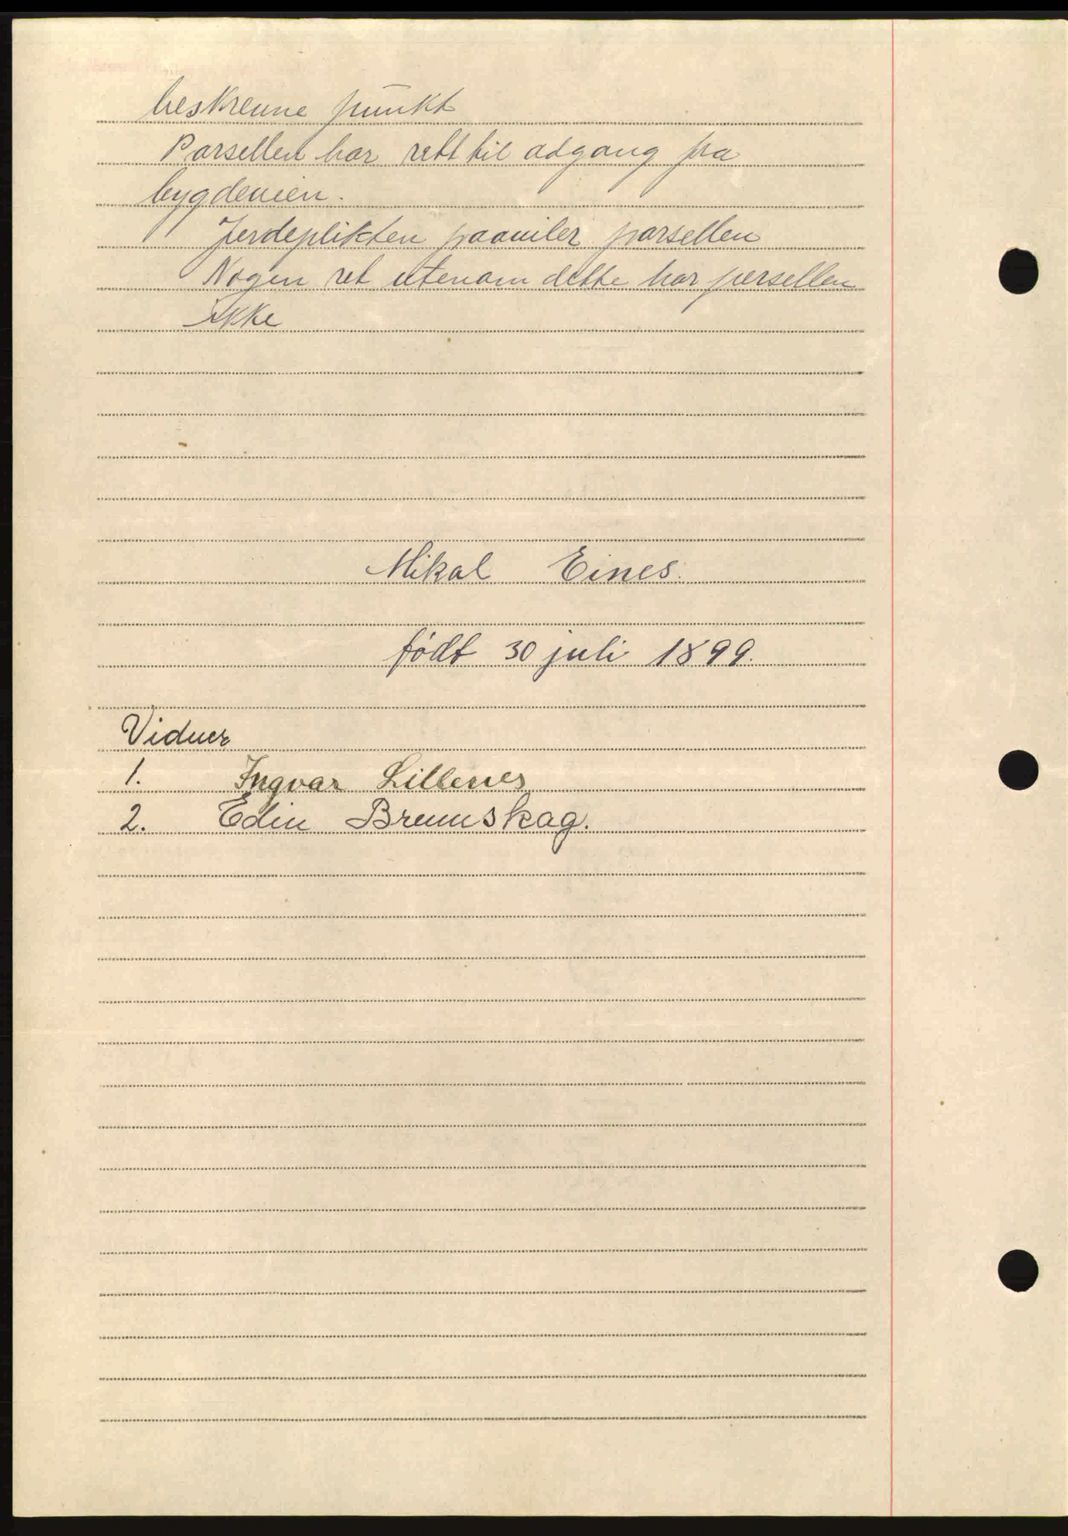 beskrevne punkt
Parsellen har rett til adgang fra
bygdeveien.
Jerdeplikten paaviler parsellen
Nogen ret utenom dette har persellen
ikke
Mikal Eines.
født 30 juli 1899.
Vidner
1. Ingvar Lillenes
2. Edin Bremskag.